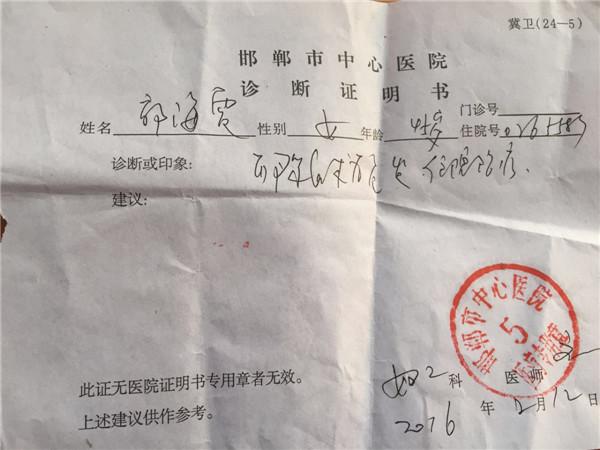 冀卫(24—5)
邯郸市中心医院
诊断证明书
门诊号
姓名 郭海霞 性别 女 年龄 45岁 住院号 0265583
诊断或印象: 住院治疗.
建议:
邯郸市中心医院
5
此证无医院证明书专用章者无效。
妇2科 医师
上述建议供作参考。
2016年2月12日